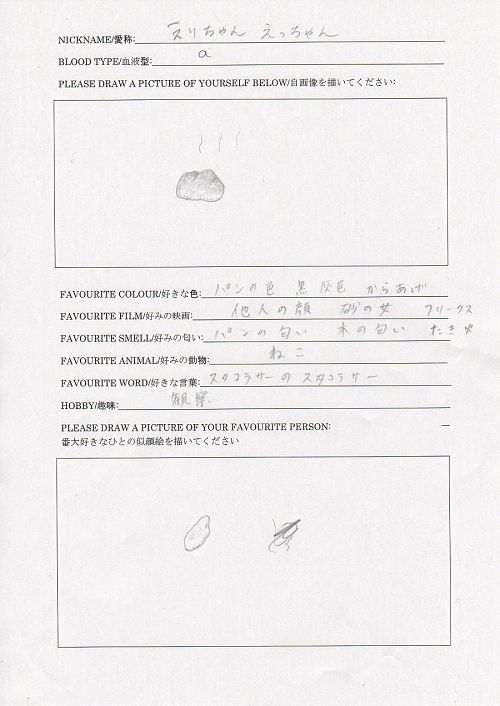 NICKNAME/愛称: えりちゃん えっちゃん
BLOOD TYPE/血液型: a
PLEASE DRAW A PICTURE OF YOURSELF BELOW/自画像を描いてください:
FAVOURITE COLOUR/好きな色: パンの色 黒 灰色 からあげ
FAVOURITE FILM/好みの映画: 他人の顔 砂の女 フリークス
FAVOURITE SMELL/好みの匂い: パンの匂い 木の匂い たき火
FAVOURITE ANIMAL/好みの動物: ねこ
FAVOURITE WORD/好きな言葉: スタコラサーのスタコラサー
HOBBY/趣味: 観察
PLEASE DRAW A PICTURE OF YOUR FAVOURITE PERSON: 一
番大好きなひとの似顔絵を描いてください